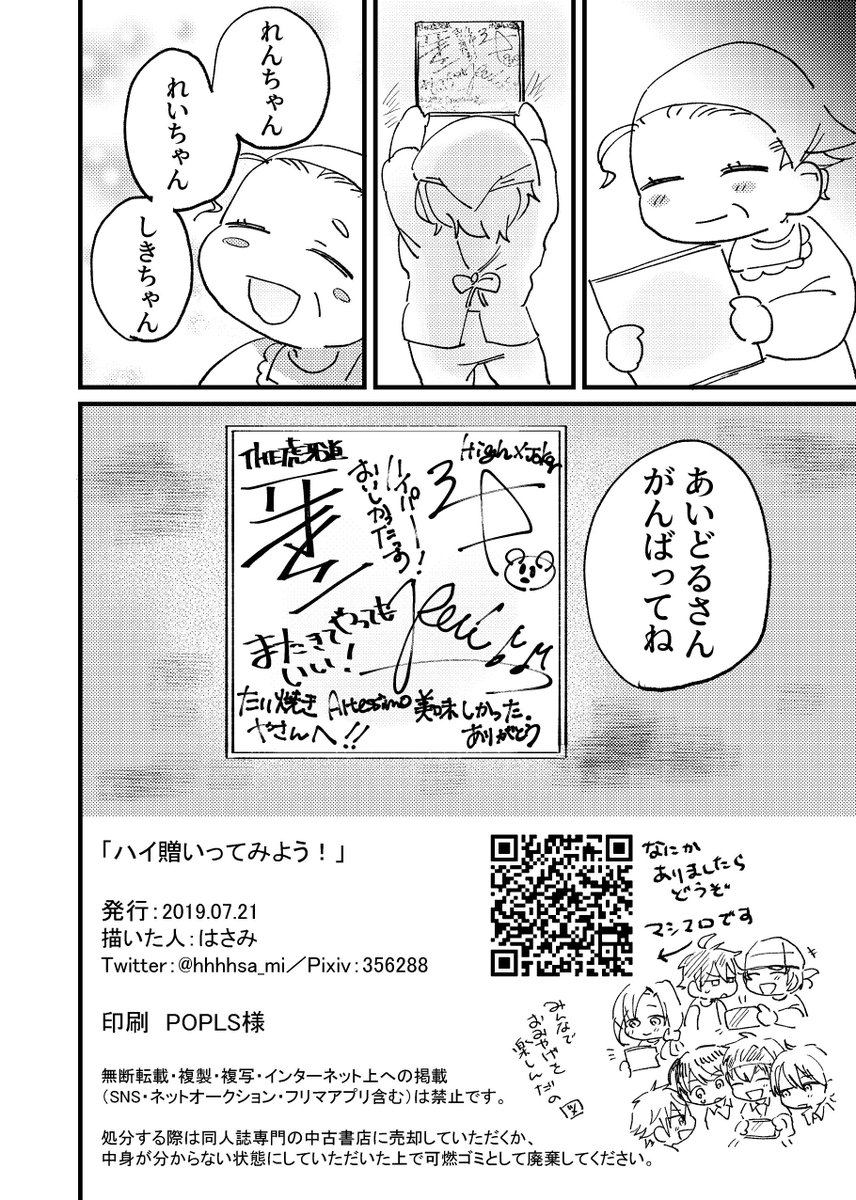 れんちゃん
れいちゃん
しきちゃん
あいどるさん
がんばってね
THE虎牙道
High×Joker
ハイパー
おいしかったっす!
またきてやっても
いい!
たい焼き
やさんへ!!
Altessimo
美味しかった。
ありがとう
「ハイ贈いってみよう!」
発行:2019.07.21
描いた人:はさみ
Twitter:@hhhhsa_mi/Pixiv:356288
印刷 POPLS様
無断転載・複製・複写・インターネット上への掲載
(SNS・ネットオークション・フリマアプリ含む)は禁止です。
処分する際は同人誌専門の中古書店に売却していただくか、
中身が分からない状態にしていただいた上で可燃ゴミとして廃棄してください。
なにか
ありましたら
どうぞ
マシマロです
みんなで
おみやげを
楽しんだの
図